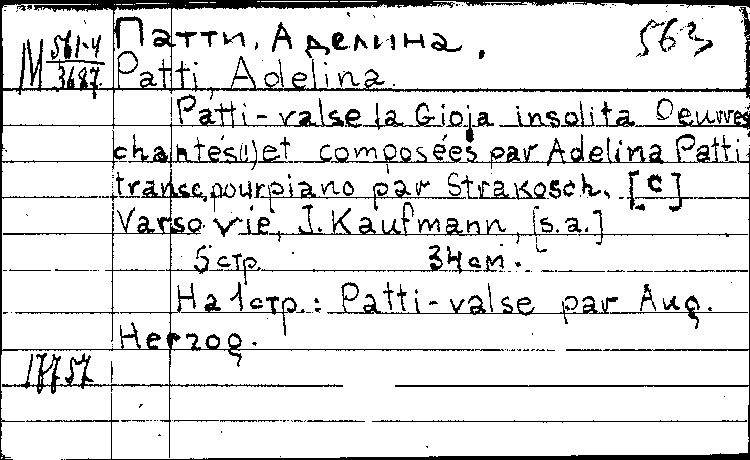 Патти, Аделина. 563
М 561-4/3687 Patti, Adelina.
Patti-valse la Gioja insolita Oeuvres
chantés(!) et composées par Adelina Patti
transc. pour piano par Strakosch. [C]
Varsovie, J. Kaufmann, [s.a.]
5 стр. 34 см.
На 1 стр.: Patti-valse par Aug.
Herzog.
17757